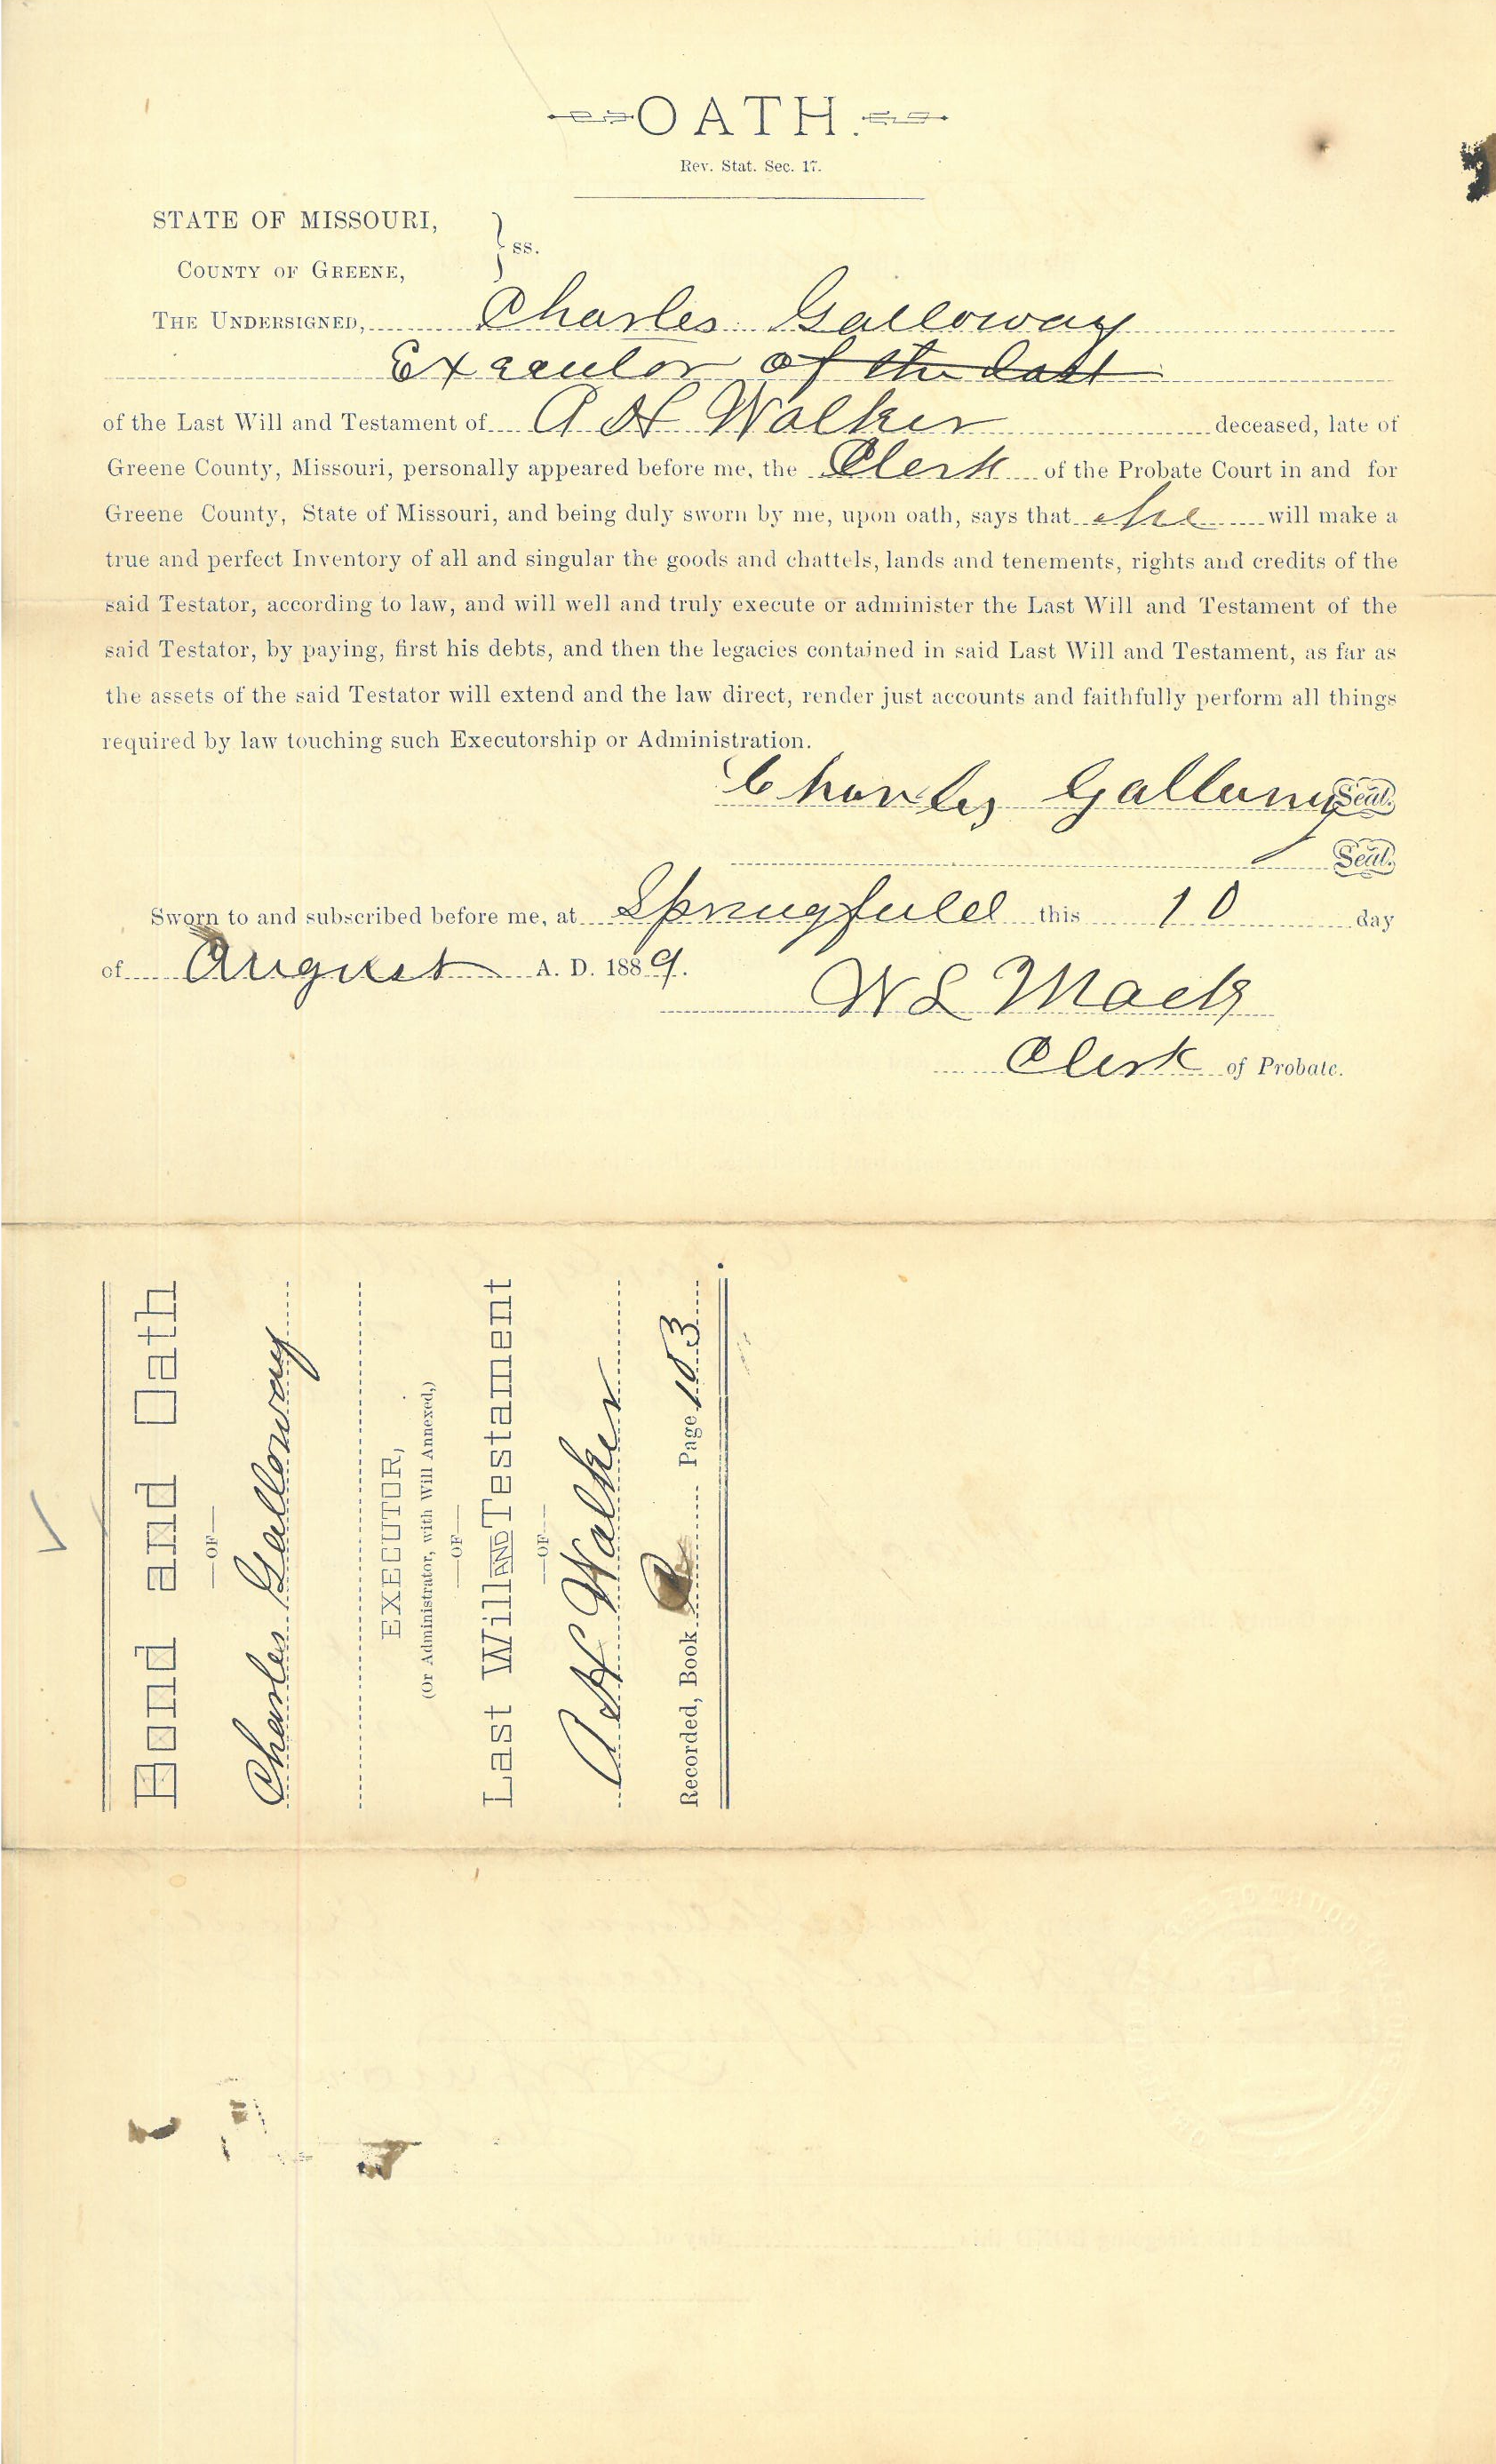 OATH.
Rev. Stat. Sec. 17.
STATE OF MISSOURI,
COUNTY OF GREENE,
} ss.
THE UNDERSIGNED, Charles Galloway
Executor of the last
of the Last Will and Testament of A H Walker deceased, late of
Greene County, Missouri, personally appeared before me, the Clerk of the Probate Court in and for
Greene County, State of Missouri, and being duly sworn by me, upon oath, says that he will make a
true and perfect Inventory of all and singular the goods and chattels, lands and tenements, rights and credits of the
said Testator, according to law, and will well and truly execute or administer the Last Will and Testament of the
said Testator, by paying, first his debts, and then the legacies contained in said Last Will and Testament, as far as
the assets of the said Testator will extend and the law direct, render just accounts and faithfully perform all things
required by law touching such Executorship or Administration.
Charles Galloway Seal.
Seal.
Sworn to and subscribed before me, at Springfield this 10 day
of August A. D. 1889.
W L Mack
Clerk of Probate.
Bond and Oath
—OF—
Charles Galloway
EXECUTOR,
(Or Administrator, with Will Annexed,)
—OF—
Last Will AND Testament
—OF—
A H Walker
Recorded, Book Page 103